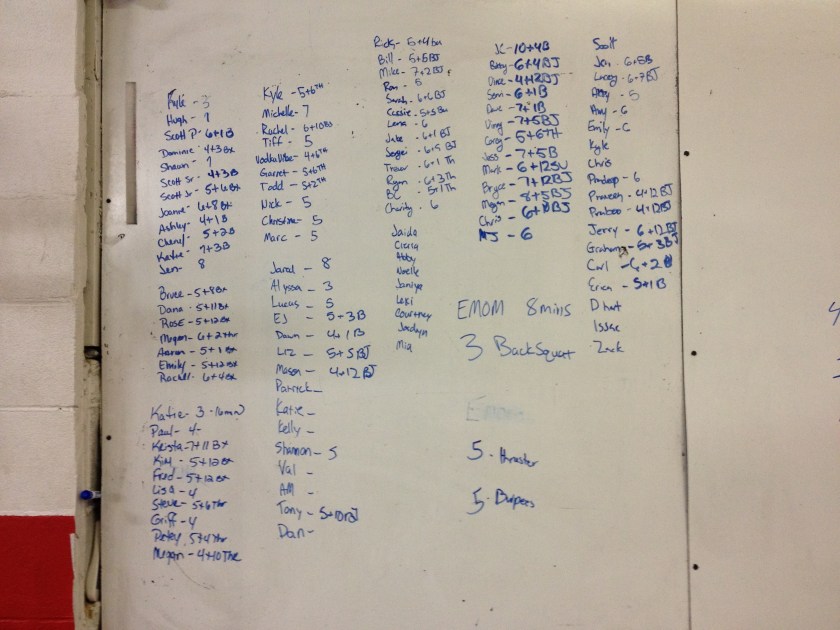 Kyle - 3
Hugh - 7
Scott P - 6+1B
Dominic 4+3Bx
Shawn - 7
Scott Sr - 4+3B
Scott Jr - 5+6Bx
Joanne - 6+8Bx
Ashley - 4+1B
Cheryl - 5+3B
Katie - 7+3B
Jen - 8
Bruce - 5+8Bx
Dana - 5+11Bx
Rose - 5+12Bx
Megan - 6+2thr
Aaron - 5+1Bx
Emily - 5+12Bx
Rachel - 6+4Bx
Katie - 3
Paul - 4
Krista - 7+11Bx
Kim - 5+12Bx
Fred - 5+12Bx
Lisa - 4
Steve - 5+6Thr
Griff - 4
Petey 5+4thr
Megan - 4+10Thr
Kyle - 5+6TH
Michelle - 7
Rachel - 6+10Bx
Tiff - 5
4+6TH
Garret - 5+6TH
Todd - 5+2TH
Nick - 5
Christine - 5
Marc - 5
Jarod - 8
Alyssa - 3
Lucas - 5
EJ - 5+3B
Dawn - 4+1B
Liz - 5+5BJ
Mason - 4+12BJ
Patrick -
Katie -
Kelly -
Shannon - 5
Val -
AM -
Tony - 5+10BJ
Dan -
Rick - 5+4bu
Bill - 5+5BJ
Mike - 7+2BJ
Ron - 5
Sarah - 6+6BJ
Cassie - 5+5Bu
Lena - 6
Jake - 6+1BJ
Sergei - 6+5BJ
Trevor - 6+1Th
Ryan - 6+3Th
BC - 5+1Th
Charity - 6
Jaida
Cierra
Abby
Noelle
Janiya
Lexi
Courtney
Jordyn
Mia
JC - 10+4B
6+4BJ
4+12BJ
6+1B
Dave - 7+1B
Doug - 7+5BJ
Greg - 5+6TH
Jess - 7+5B
Mark - 6+12SU
Bryce - 7+12BJ
Megan - 8+5BJ
Chris - 6+10BJ
AJ - 6
EMOM 8mins
3 BackSquat
Emom
5 - thruster
5 - Burpees
Scott
Jen - 6+5B
Lacey - 6+7BJ
Abby - 5
Amy - 6
Emily - 6
Kyle
Chris
Pradeep - 6
4+12BJ
4+12BJ
Jerry - 6+12BJ
Graham - 5+3BJ
Carl - 6+2B
Erica - 5+1B
Dhat
Issac
Zack